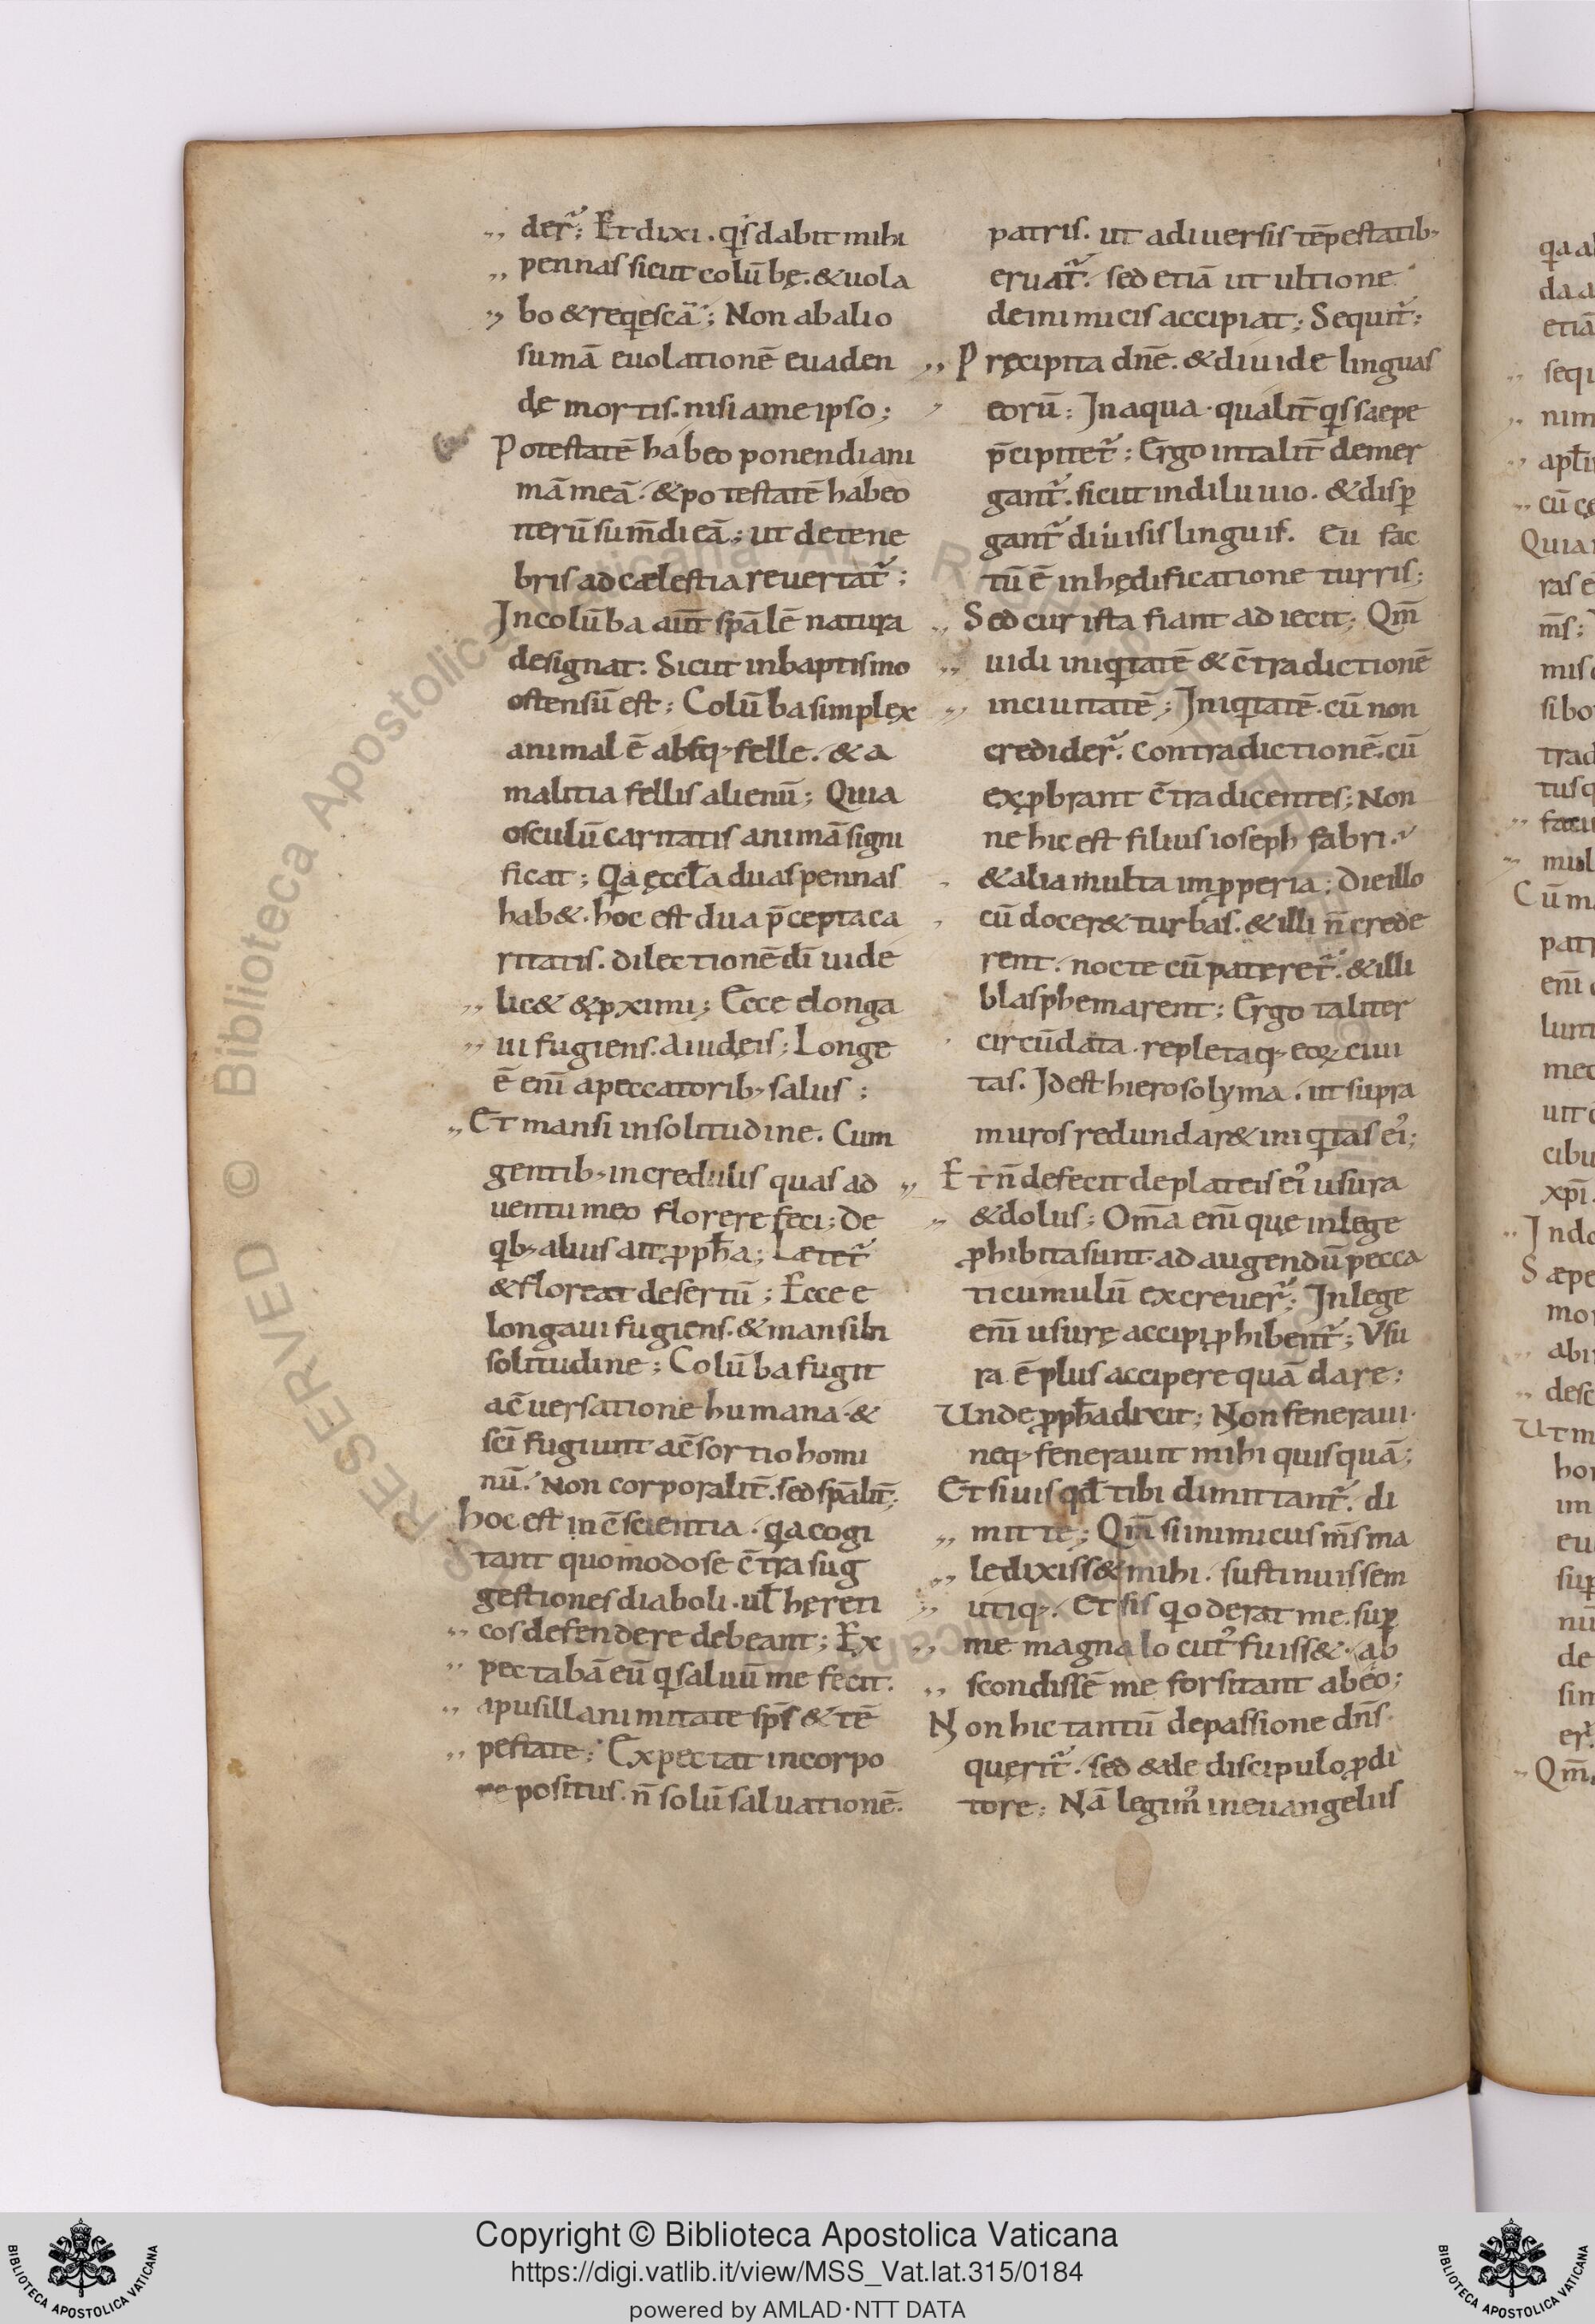 derr̃; Et dixi. qͥs dabit mihi
pennas sicut colūbę. & uola
bo & reqͥescā; Non ab alio
sumā euolationē euaden
dę mortis. nisi a me ipso;
Potestatē habeo ponendi ani
mā meā. & potestatē habeo
iterū sum̄di eā; ut de tene
bris ad cælestia reuertat̃;
In colūba aut̄ sp̄alē natura
designat. Sicut in baptismo
ostensū est; Colūba simplęx
animal ē absq; felle. & a
malitia fellis alienū; Quia
osculū caritatis animā signi
ficat; Qͣ ęccl̄a duas pennas
hab&. hoc est duo p̄cepta ca
ritatis. dilectionē dī uide
lic& & ꝓximi; Ecce elonga
ui fugiens. a iudęis; Longe
ē enī a peccatorib; salus;
Et mansi in solitudine. Cum
gentib; incredulis quas ad
uentu meo florere feci; De
qͥb; alius ait ꝓph̄a; Lætet̃
& floreat desertū; Ecce e
longaui fugiens. & mansi in
solitudine; Colūba fugit
a c̄uersatione humana. &
sc̄i fugiunt a c̄sortio homi
nū. Non corporalit̄. sed sp̄alit̄;
hoc est in c̄scientia. qͥa cogi
tant quomodo se c̄tra sug
gestiones diaboli. ul̄ hęreti
cos defendere debeant; Ex
pectabā eū qͥ saluū me fecit.
a pusillanimitate sp̄s & tē
pestate; Expectat in corpo
re positus. n̄ solū saluationē.
patris. ut a diuersis tēpestatib;
eruat̃. sed etiā ut ultione
de inimicis accipiat; Sequit̃;
Pręcipita dn̄e. & diuide linguas
eorū; In aqua. qualit̄ qͥs saepe
p̄cipitet̃; Ergo in talit̄ demer
gant̃. sicut in diluuio. & disꝑ
gant̃ diuisis linguis. Eu fac
tū ē in hędificatione turris;
Sed cur ista fiant adiecit; Qm̄
uidi iniqͥtatē & c̄tradictionē
in ciuitatē; Iniqͥtatē. cū non
crediderr̃. contradictionē. cū
exꝓbrant c̄tradicentes; Non
ne hic est filius ioseph fabri.
& alia multa imꝓperia; Die illo
cū docer& turbas. & illi n̄ crede
rent. nocte cū pateret̃. & illi
blasphemarent; Ergo taliter
circūdata. repletaq; eoꝝ ciui
tas. Id est hierosolyma. ut supra
muros redundar& iniqͥtas ei᾿;
Et n̄ defecit de plateis ei᾿ usura
& dolus; Om̄a enī que in lege
ꝓhibita sunt. ad augendū pecca
ti cumulū excreuerr̃; In lege
enī usurę accipi ꝓhibent̃; Vsu
ra ē plus accipere quā dare;
Unde ꝓph̄a dixit; Non feneraui.
neq; fenerauit mihi quisquā;
Et si uis qd̄ tibi dimittant̃. di
mitte; Qm̄ si inimicus m̄s ma
ledixiss& mihi. sustinuissem
utiq;. Et si is qͥ oderat me. suꝑ
me magna locut᾿ fuiss&. ab
scondissē me forsitant ab eo;
Non hic tantū de passione dn̄s
querit̃. sed & de discipulo ꝓdi
tore; Nā legim᾿ in euangeliis
Copyright © Biblioteca Apostolica Vaticana
https://digi.vatlib.it/view/MSS_Vat.lat.315/0184
powered by AMLAD·NTT DATA
BIBLIOTECA APOSTOLICA VATICANA
BIBLIOTECA APOSTOLICA VATICANA